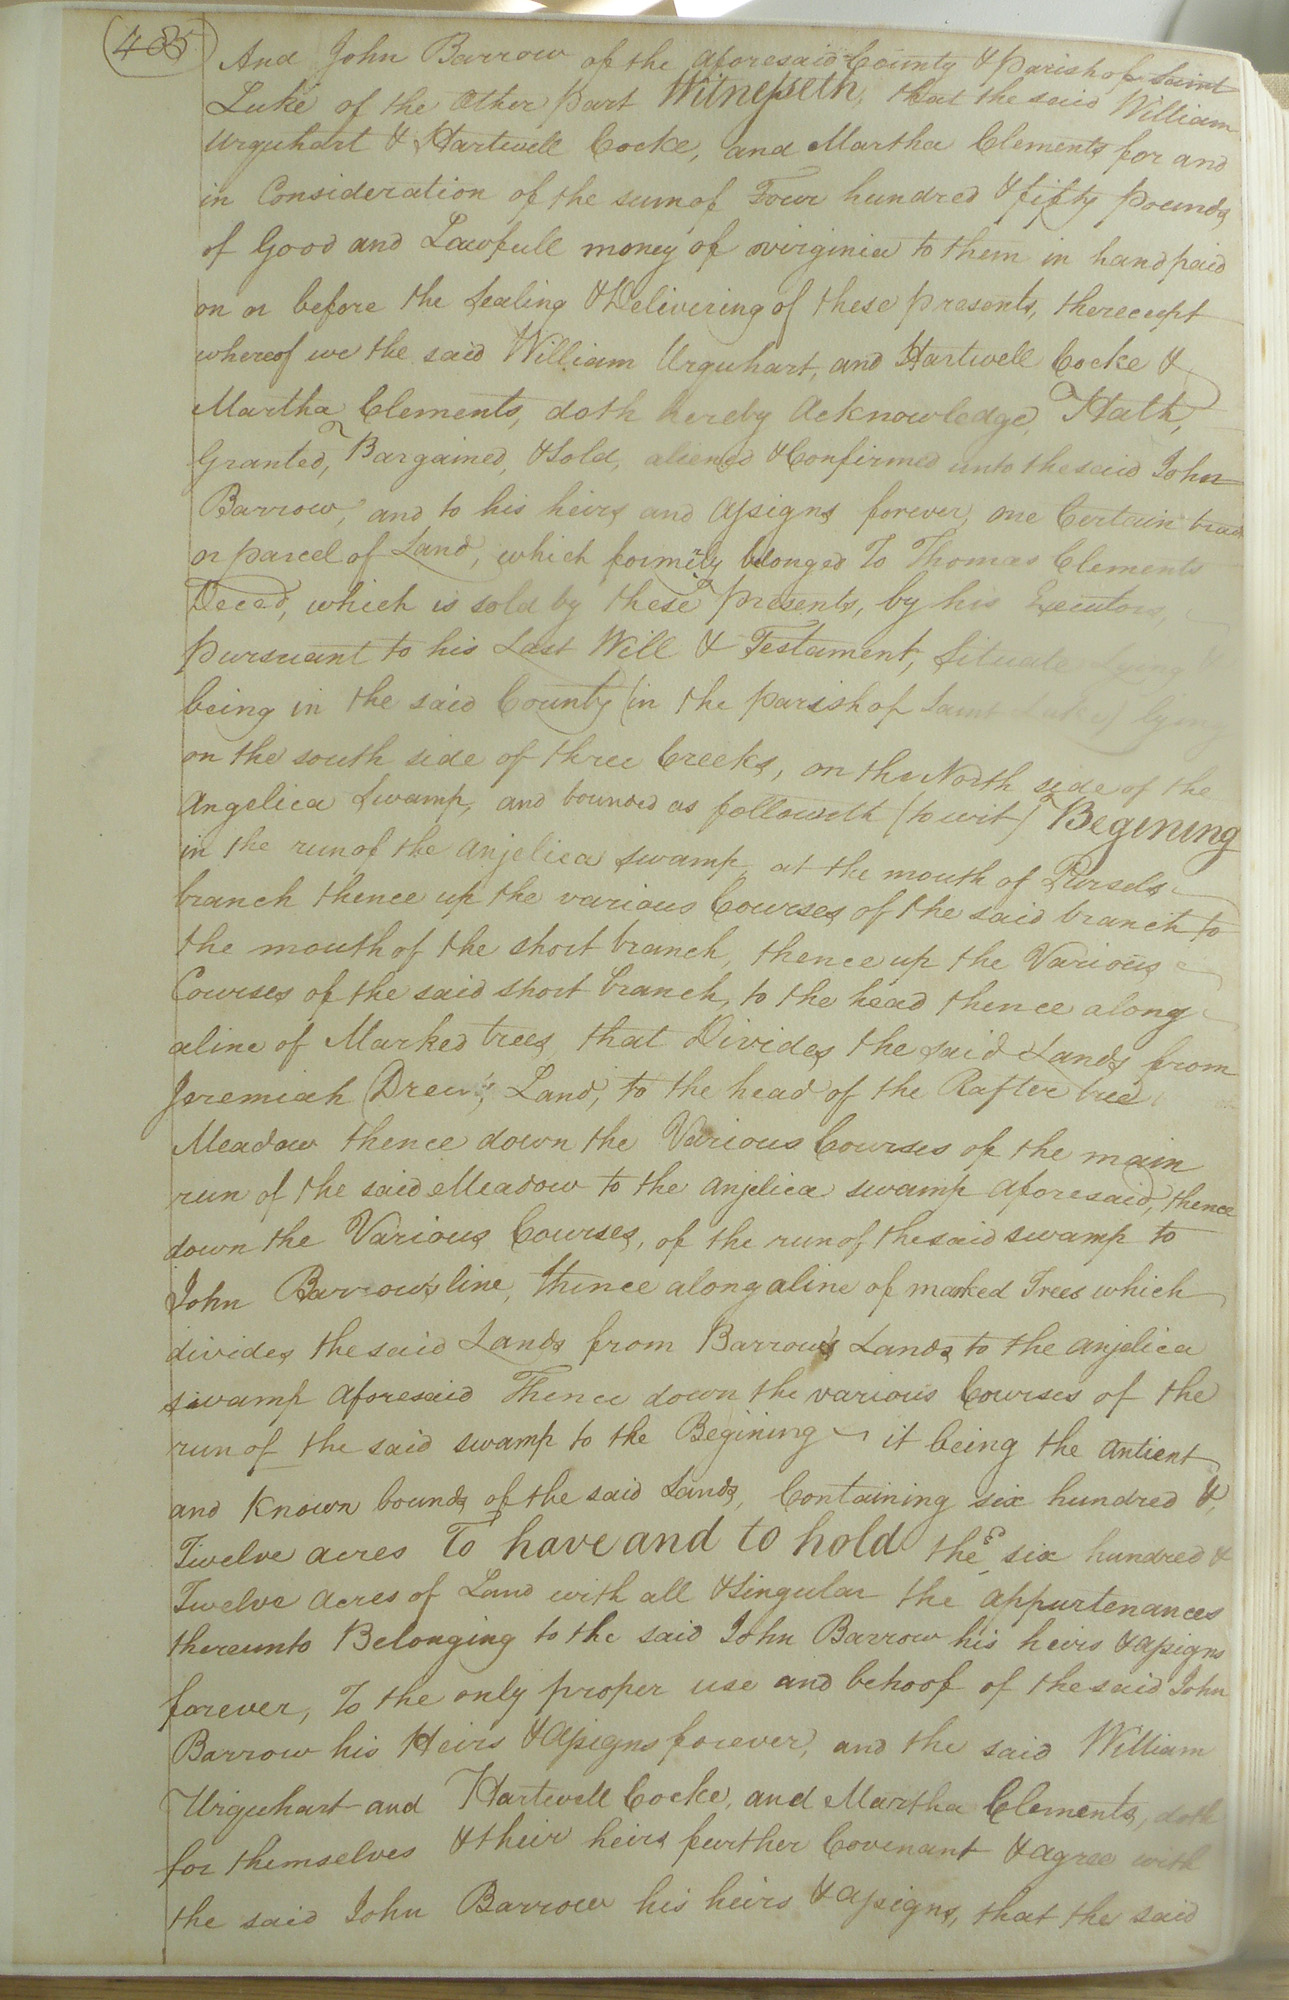 405
And John Barrow of the aforesaid County & parish of Saint
Luke of the Other part Witnesseth, that the said William
Urquhart & Hartwell Cocke, and Martha Clements for and
in Consideration of the sum of Four hundred & fifty pounds
of Good and Lawfull money of virginia to them in hand paid
on or before the Sealing & Delivering of these presents, the receipt
whereof we the said William Urquhart, and Hartwell Cocke &
Martha Clements, doth hereby Acknowledge, Hath,
Granted, Bargained, & Sold, aliened & Confirmed unto the said John
Barrow, and to his heirs and assigns forever, one Certain tract
or parcel of Land, which formerly belonged To Thomas Clements
Deced, which is sold by these presents, by his Executors,
pursuant to his Last Will & Testament, Situate Lying &
being in the said County (in the parish of Saint Lukes) lying
on the south side of three Creeks, on the North side of the
Angelica Swamp, and bounded as followeth (to wit) Begining
in the run of the anjelica swamp, at the mouth of Pursels
branch thence up the various Courses of the said branch to
the mouth of the short branch, thence up the Various
Courses of the said short branch, to the head thence along
a line of Marked trees, that Divides the said Lands from
Jeremiah Drew's Land, to the head of the Rafter tree
Meadow thence down the Various Courses of the main
run of the said Meadow to the anjelica swamp aforesaid, thence
down the Various Courses, of the run of the said swamp to
John Barrow's line, thence along a line of marked Trees which
divides the said Lands from Barrow's Lands to the anjelica
swamp aforesaid Thence down the various Courses of the
run of the said swamp to the Begining it being the antient
and Known bounds of the said Lands, Containing six hundred &
Twelve acres To have and to hold the six hundred &
Twelve acres of Land with all & Singular the appurtenances
thereunto Belonging to the said John Barrow his heirs & assigns
forever, To the only proper use and behoof of the said John
Barrow his Heirs & assigns forever, and the said William
Urquhart and Hartwell Cocke, and Martha Clements, doth
for themselves & their heirs further Covenant & agree with
the said John Barrow his heirs & assigns, that the said